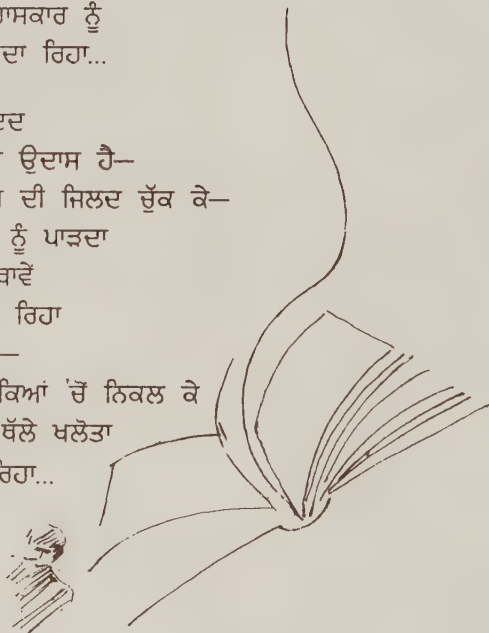 ਾਸਕਾਰ ਨੂੰ
ਦਾ ਰਿਹਾ...
ਉਦਾਸ ਹੈ—
ਦੀ ਜਿਲਦ ਚੁੱਕ ਕੇ—
ਨੂੰ ਪਾੜਦਾ
ਰਿਹਾ
—
ਕਿਆਂ 'ਚੋਂ ਨਿਕਲ ਕੇ
ਥੱਲੇ ਖਲੋਤਾ
ਰਿਹਾ...